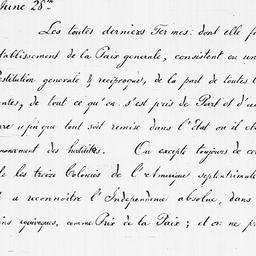 June 28th
Les toutes dernieres Termes: dont elle f
tablissement de la Paix generale, consistent en un
stitution generale & reciproque, de la part de toutes
antes, de tout ce qu'on s'est pris de Part et d'au
re afin que tout soit remise dans l'Etat ou il et
mmencement des hostilités. On excepte toujours de ce
le les treize Colonies de l'Amerique septentrionale
t a reconnoitre l'Independence absolue, dans
ins equivoques, comme Prix de la Paix; et on ne pr